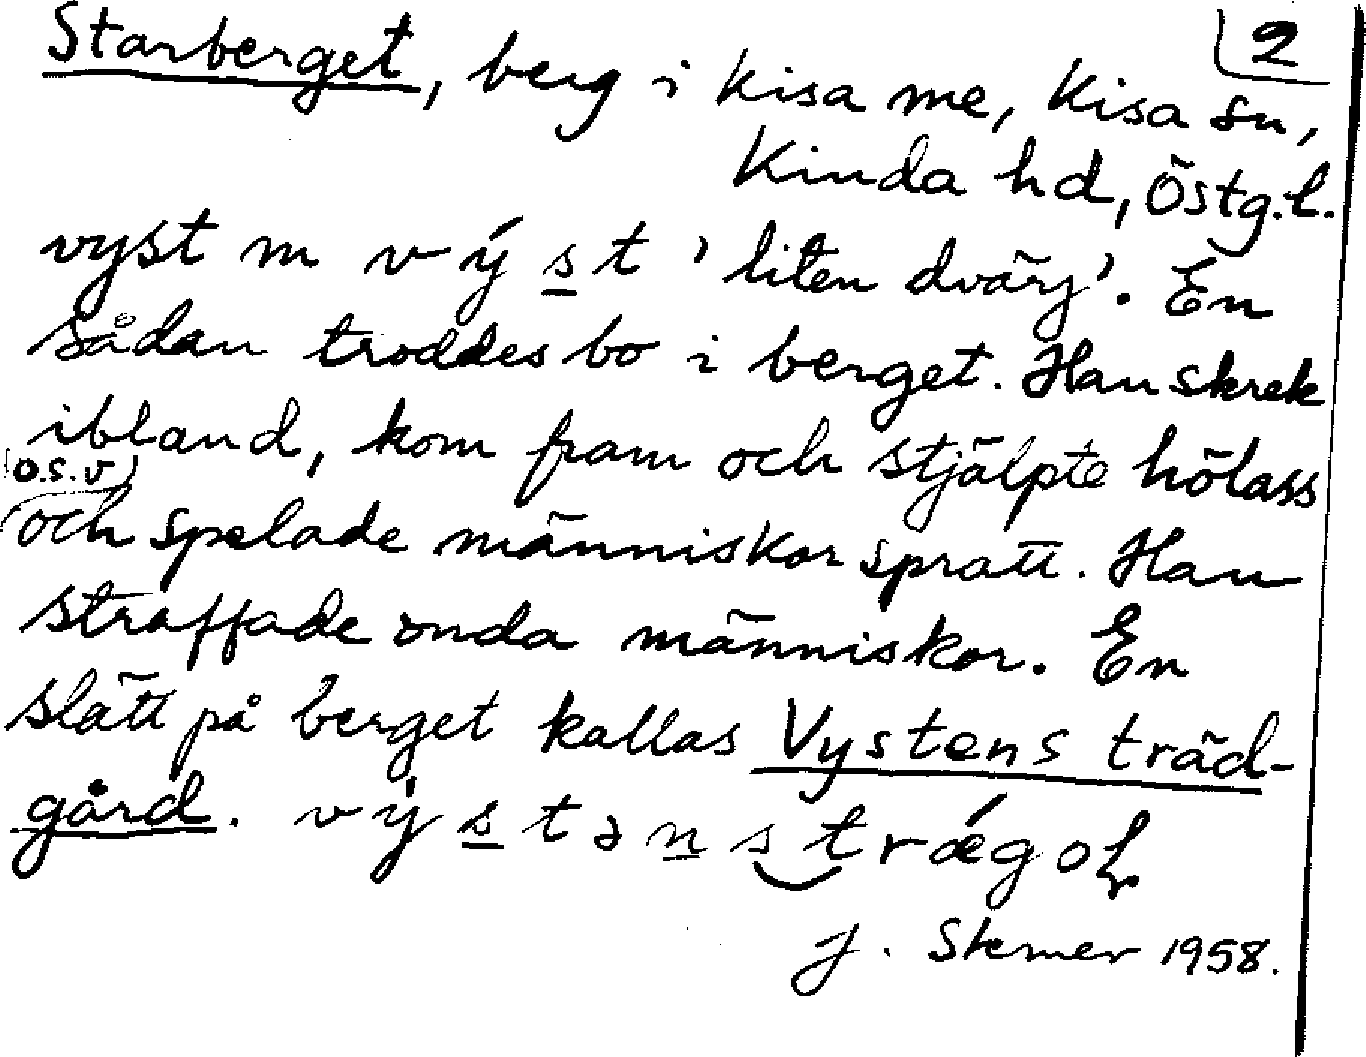 2
Starberget, berg i Kisa me, Kisa sn,
Kinda hd, Östg.l.
vyst m v ý s t 'liten dvärj'. En
sådan troddes bo i berget. Han skrek
ibland, kom fram och stjälpte hölass
(o.s.v)
och spelade människor spratt. Han
straffade onda människor. En
slätt på berget kallas Vystens träd-
gård. v ý s t ə n s t r ǽ g o
J. Stemer 1958.